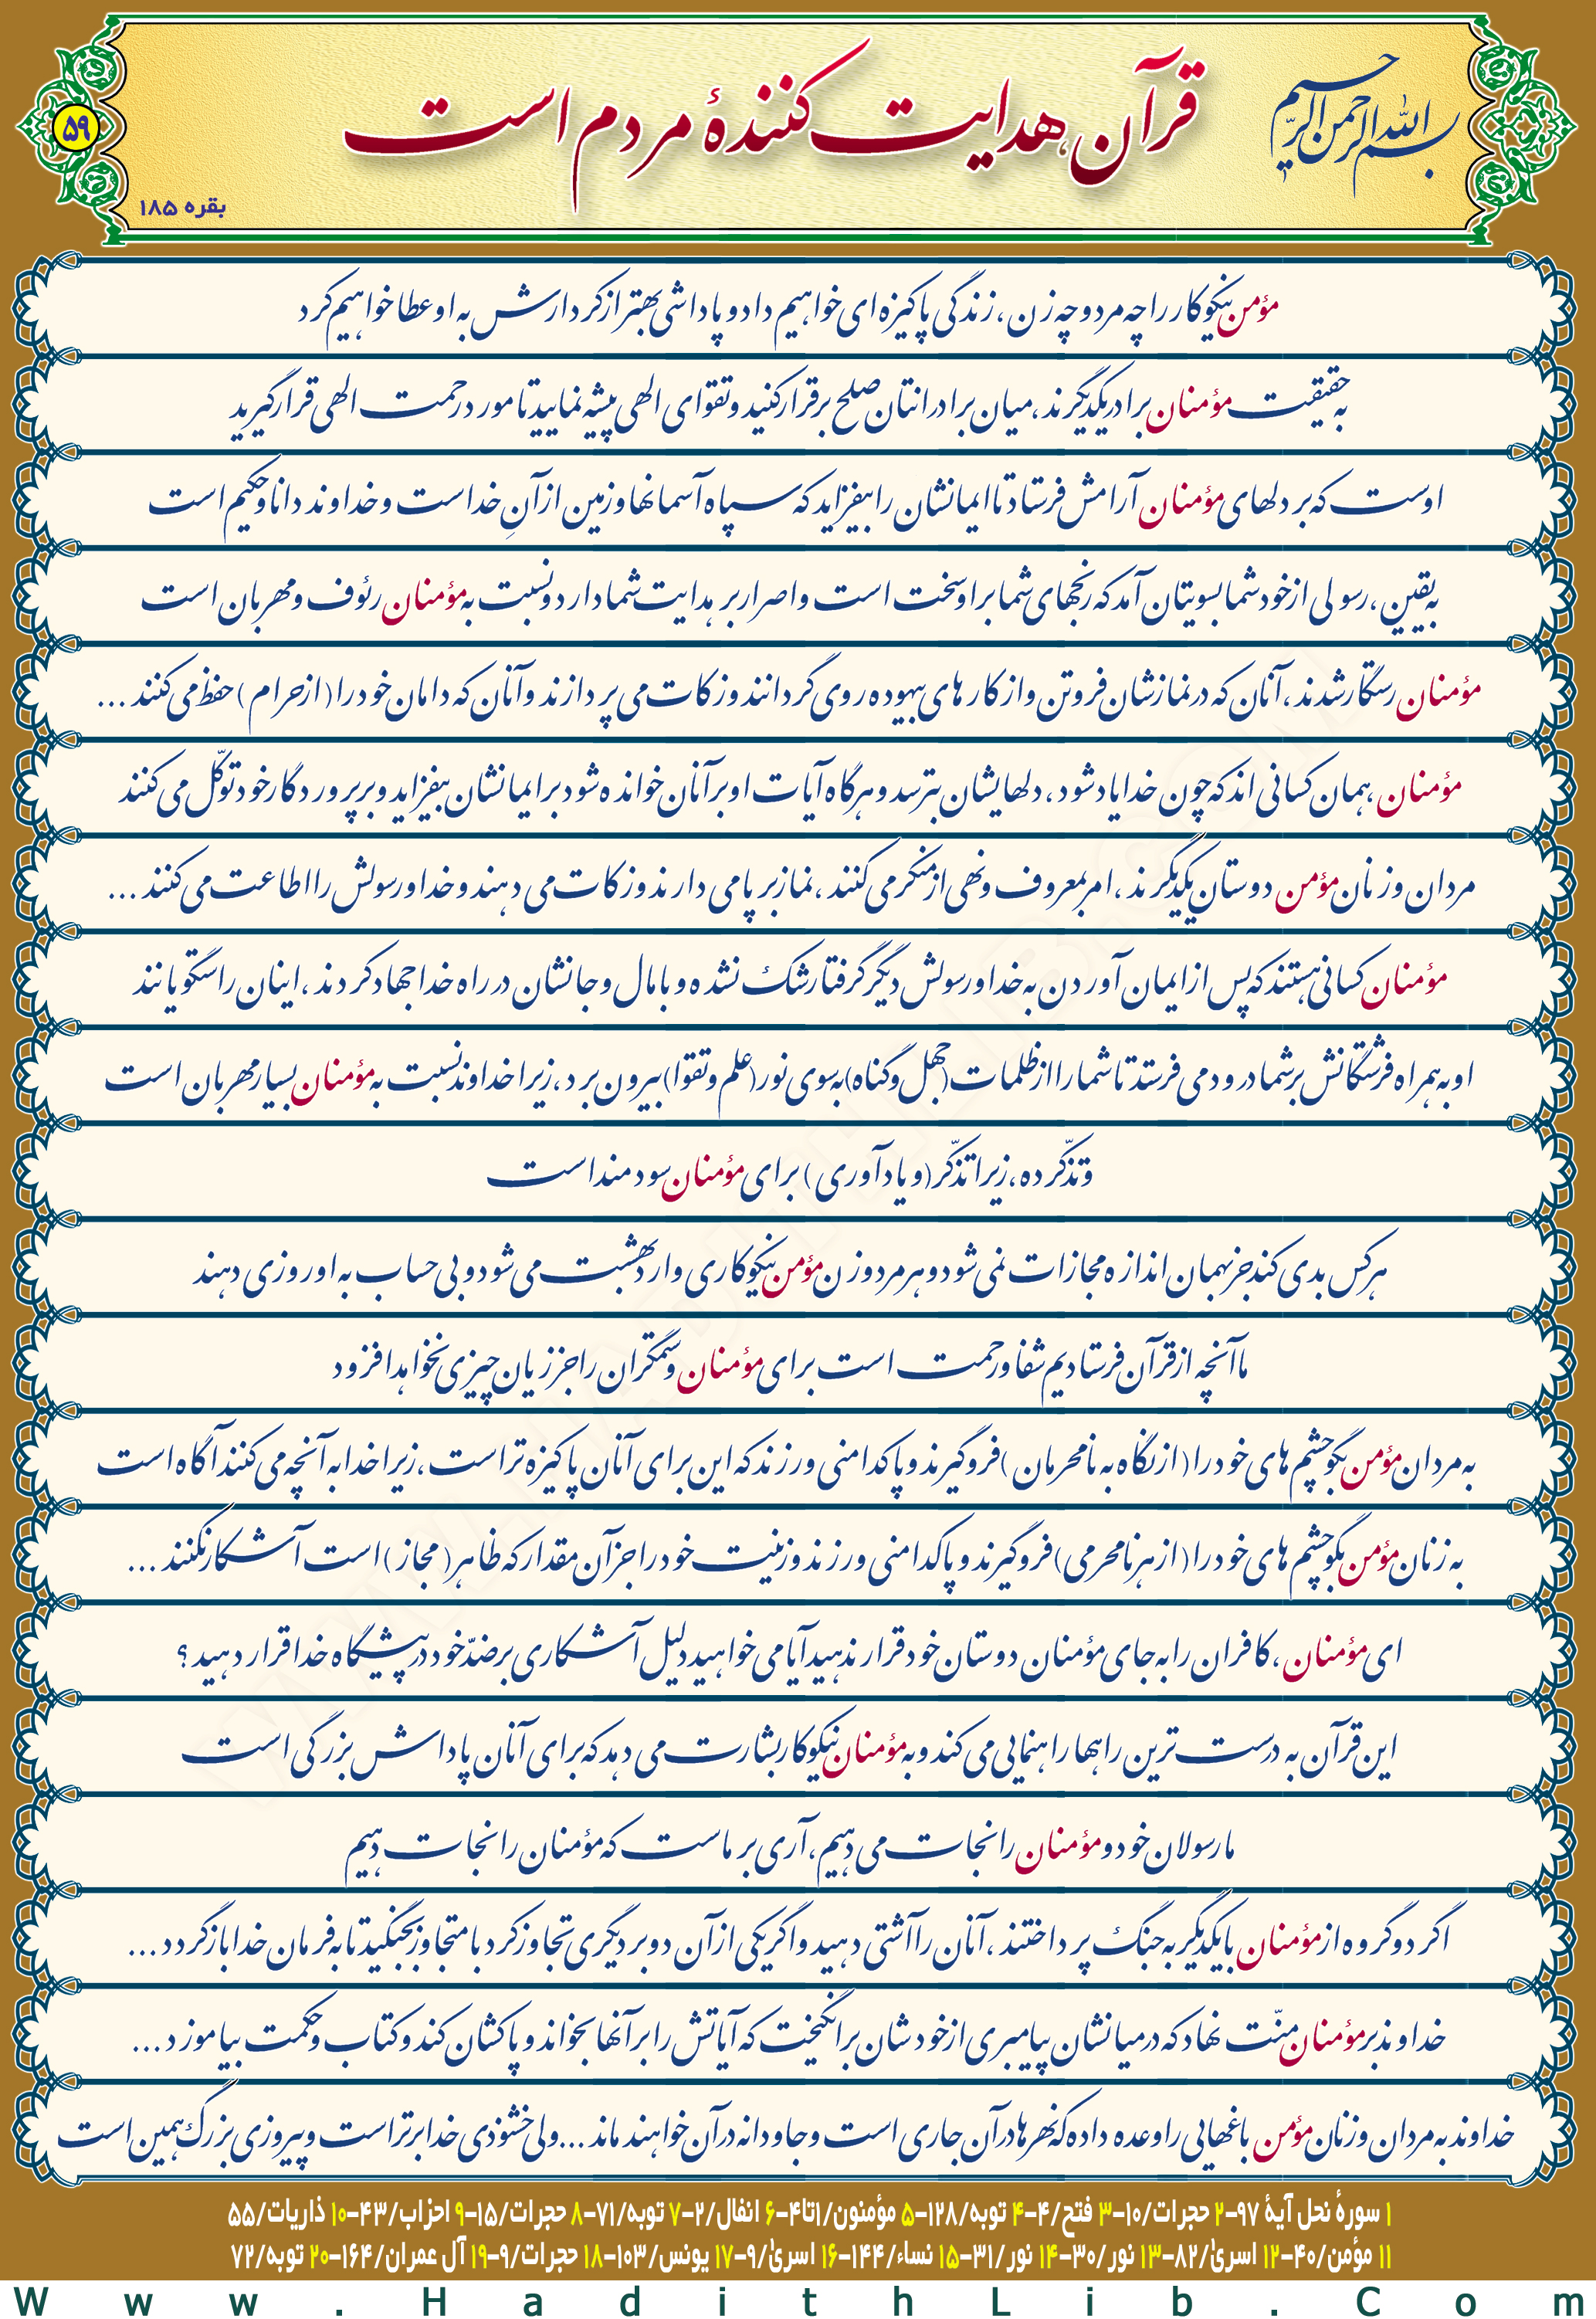 بسم الله الرحمن الرحیم
قرآن هدایت کنندهٔ مردم است
۵۹
بقره ۱۸۵
مؤمن نیکوکار را چه مرد و چه زن، زندگی پاکیزه ای خواهیم داد و پاداشی بهتر از کردارش به او عطا خواهیم کرد
به حقیقت مؤمنان برادر یکدیگرند، میان برادرانتان صلح برقرار کنید و تقوای الهی پیشه نمایید تا مورد رحمت الهی قرار گیرید
اوست که بر دلهای مؤمنان آرامش فرستاد تا ایمانشان را بیفزاید که سپاه آسمانها و زمین از آنِ خداست و خداوند دانا و حکیم است
به یقین، رسولی از خود شما بسویتان آمد که رنجهای شما بر او سخت است و اصرار بر هدایت شما دارد و نسبت به مؤمنان رئوف و مهربان است
مؤمنان رستگار شدند، آنان که در نمازشان فروتن و از کارهای بیهوده روی گردانند و زکات می پردازند و آنان که دامان خود را (از حرام) حفظ می کنند ...
مؤمنان، همان کسانی اند که چون خدا یاد شود، دلهایشان بترسد و هرگاه آیات او بر آنان خوانده شود بر ایمانشان بیفزاید و بر پروردگار خود توکّل می کنند
مردان و زنان مؤمن دوستان یکدیگرند، امر بمعروف و نهی از منکر می کنند، نماز بر پا می دارند و زکات می دهند و خدا و رسولش را اطاعت می کنند ...
مؤمنان کسانی هستند که پس از ایمان آوردن به خدا و رسولش دیگر گرفتار شک نشده و با مال و جانشان در راه خدا جهاد کردند، اینان راستگویانند
او به همراه فرشتگانش بر شما درود می فرستد تا شما را از ظلمات (جهل و گناه) به سوی نور (علم و تقوا) بیرون برد، زیرا خداوند نسبت به مؤمنان بسیار مهربان است
و تذکّر ده، زیرا تذکّر (و یادآوری) برای مؤمنان سودمند است
هر کس بدی کند جز بهمان اندازه مجازات نمی شود و هر مرد و زن مؤمن نیکوکاری وارد بهشت می شود و بی حساب به او روزی دهند
ما آنچه از قرآن فرستادیم شفا و رحمت است برای مؤمنان و ستمگران را جز زیان چیزی نخواهد افزود
به مردان مؤمن بگو چشم های خود را (از نگاه به نامحرمان) فرو گیرند و پاکدامنی ورزند که این برای آنان پاکیزه تر است، زیرا خدا به آنچه می کنند آگاه است
به زنان مؤمن بگو چشم های خود را (از هر نامحرمی) فرو گیرند و پاکدامنی ورزند و زینت خود را جز آن مقدار که ظاهر (مجاز) است آشکار نکنند ...
ای مؤمنان، کافران را به جای مؤمنان دوستان خود قرار ندهید آیا می خواهید دلیل آشکاری بر ضدّ خود در پیشگاه خدا قرار دهید؟
این قرآن به درست ترین راهها راهنمایی می کند و به مؤمنان نیکوکار بشارت می دهد که برای آنان پاداش بزرگی است
ما رسولان خود و مؤمنان را نجات می دهیم، آری بر ماست که مؤمنان را نجات دهیم
اگر دو گروه از مؤمنان با یکدیگر به جنگ پرداختند، آنان را آشتی دهید و اگر یکی از آن دو بر دیگری تجاوز کرد با متجاوز بجنگید تا به فرمان خدا بازگردد ...
خداوند بر مؤمنان منّت نهاد که در میانشان پیامبری از خودشان برانگیخت که آیاتش را بر آنها بخواند و پاکشان کند و کتاب و حکمت بیاموزد ...
خداوند به مردان و زنان مؤمن باغهایی را وعده داده که نهرها در آن جاری است و جاودانه در آن خواهند ماند ... ولی خشنودی خدا برتر است و پیروزی بزرگ همین است
۱ سورهٔ نحل آیهٔ ۹۷-۲ حجرات/۱۰-۳ فتح/۴-۴ توبه/۱۲۸-۵ مؤمنون/۱تا۴-۶ انفال/۲-۷ توبه/۷۱-۸ حجرات/۱۵-۹ احزاب/۴۳-۱۰ ذاریات/۵۵
۱۱ مؤمن/۴۰-۱۲ اسریٰ/۸۲-۱۳ نور/۳۰-۱۴ نور/۳۱-۱۵ نساء/۱۴۴-۱۶ اسریٰ/۹-۱۷ یونس/۱۰۳-۱۸ حجرات/۹-۱۹ آل عمران/۱۶۴-۲۰ توبه/۷۲
Www.HadithLib.Com